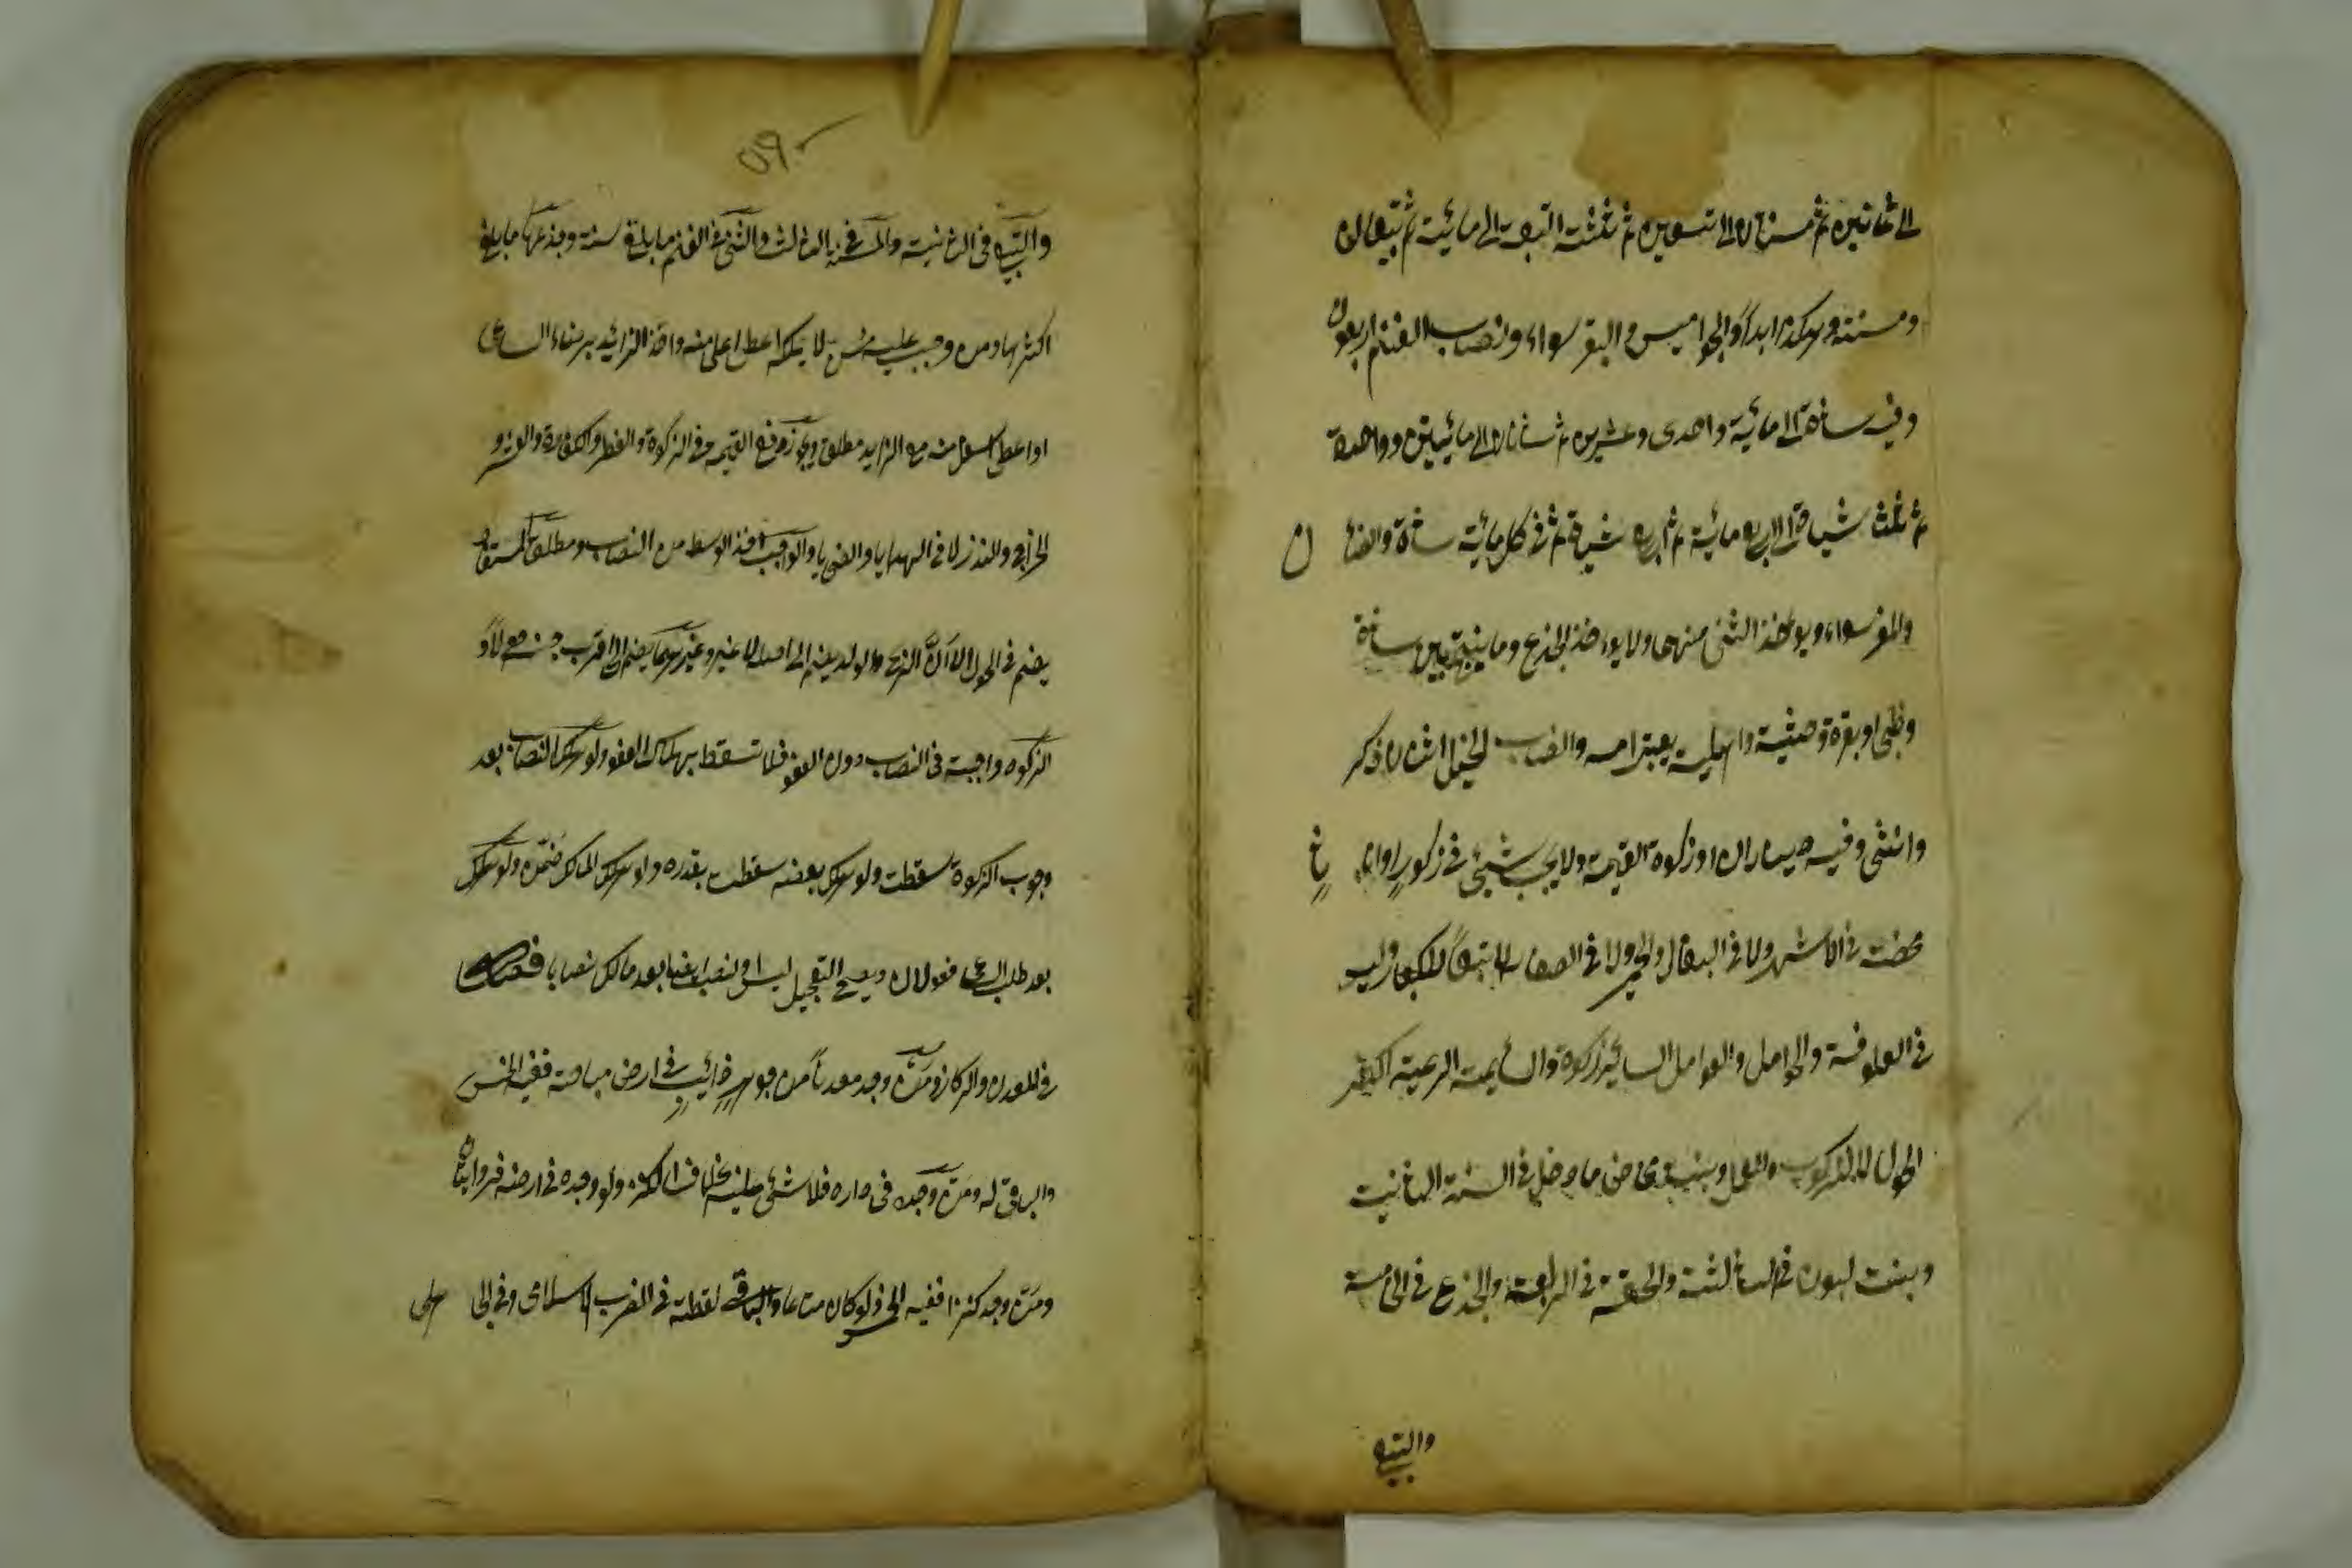 الى ثمانين ثم مسنتان الى تسعين ثم ثلثة اتبعة الى مائية ثم تبيعان
ومسنة وهكذا ابدا والجواميس والبقر سواء ونصاب الغنم اربعون
وفيه شاة الى مائية واحدى وعشرين ثم شاتان الى مائيتين وواحدة
ثم ثلث شياة الى اربع مائية ثم اربع شياة ثم في كل مائية شاة والضأن
والمعز سواء ويوخذ الثنى منهما ولا يوءخذ الجذع وما ينتج بين شاة
وظبى او بقرة وحشية واهلية يعتبر امه والنصاب الخيل اثنان ذكر
وانثى وفيه ديناران او زكوة القيمة ولا يجب شيئ في ذكور او اناث
محضت في الاشهر ولا في البغال والحمير ولا في الصغار الا تبعا للكبار وليس
في العلوفة والحوامل والعوامل السائمة زكوة والسائمة الرعية اكثر
الحول لا للركوب والعمل وبنت مخاض ما دخل في السنة الثانية
وبنت لبون في الثالثة والحقة في الرابعة والجذع في الخامسة
والتبيع
٥٩
والتبيع في الثانية والمسنة في الثالث والثنى في الغنم ما بلغ سنة وجذعها ما بلغ
اكثرها ومن وجب عليه سن لا يملكه اعطى اعلى منه واخذ الزائد برضاء الساعى
او اعطى اسفل منه مع الزايد مطلقا ويجوز دفع القيمة في الزكوة والفطر والكفارة والعشر و
الخراج والنذر لا في الهدايا والضحايا والواجب اخذ الوسط من النصاب ومطلق المستفاد
يضم في الحول الا ان الربح والولد يضم الى اصله لا غير وغيرهما يضم الى اقرب جنسه حولا و
الزكوه واجبة في النصاب دون العفو فلا تسقط بهلاك العفو ولو هلك النصاب بعد
وجوب الزكوة سقطت ولو هلك بعضه سقطت بقدره ولو استهلك المالك ضمنه ولو هلك
بعد طلب الساعى فقولان ويصح التعجيل لسنين او لنصب بعد ما ملك نصابا فصل
في المعدن والركاز ومن وجد معدنا من جوهر ذائب في ارض مباحة ففيه الخمس
والباقى له ومن وجده في داره فلا شيئ عليه بخلاف الكنز ولو وجده في ارضه فروايتان
ومن وجد كنزا ففيه الخمس ولو كان متاعا والباقى لقطة في الضرب الاسلامى وفي الجا هلى